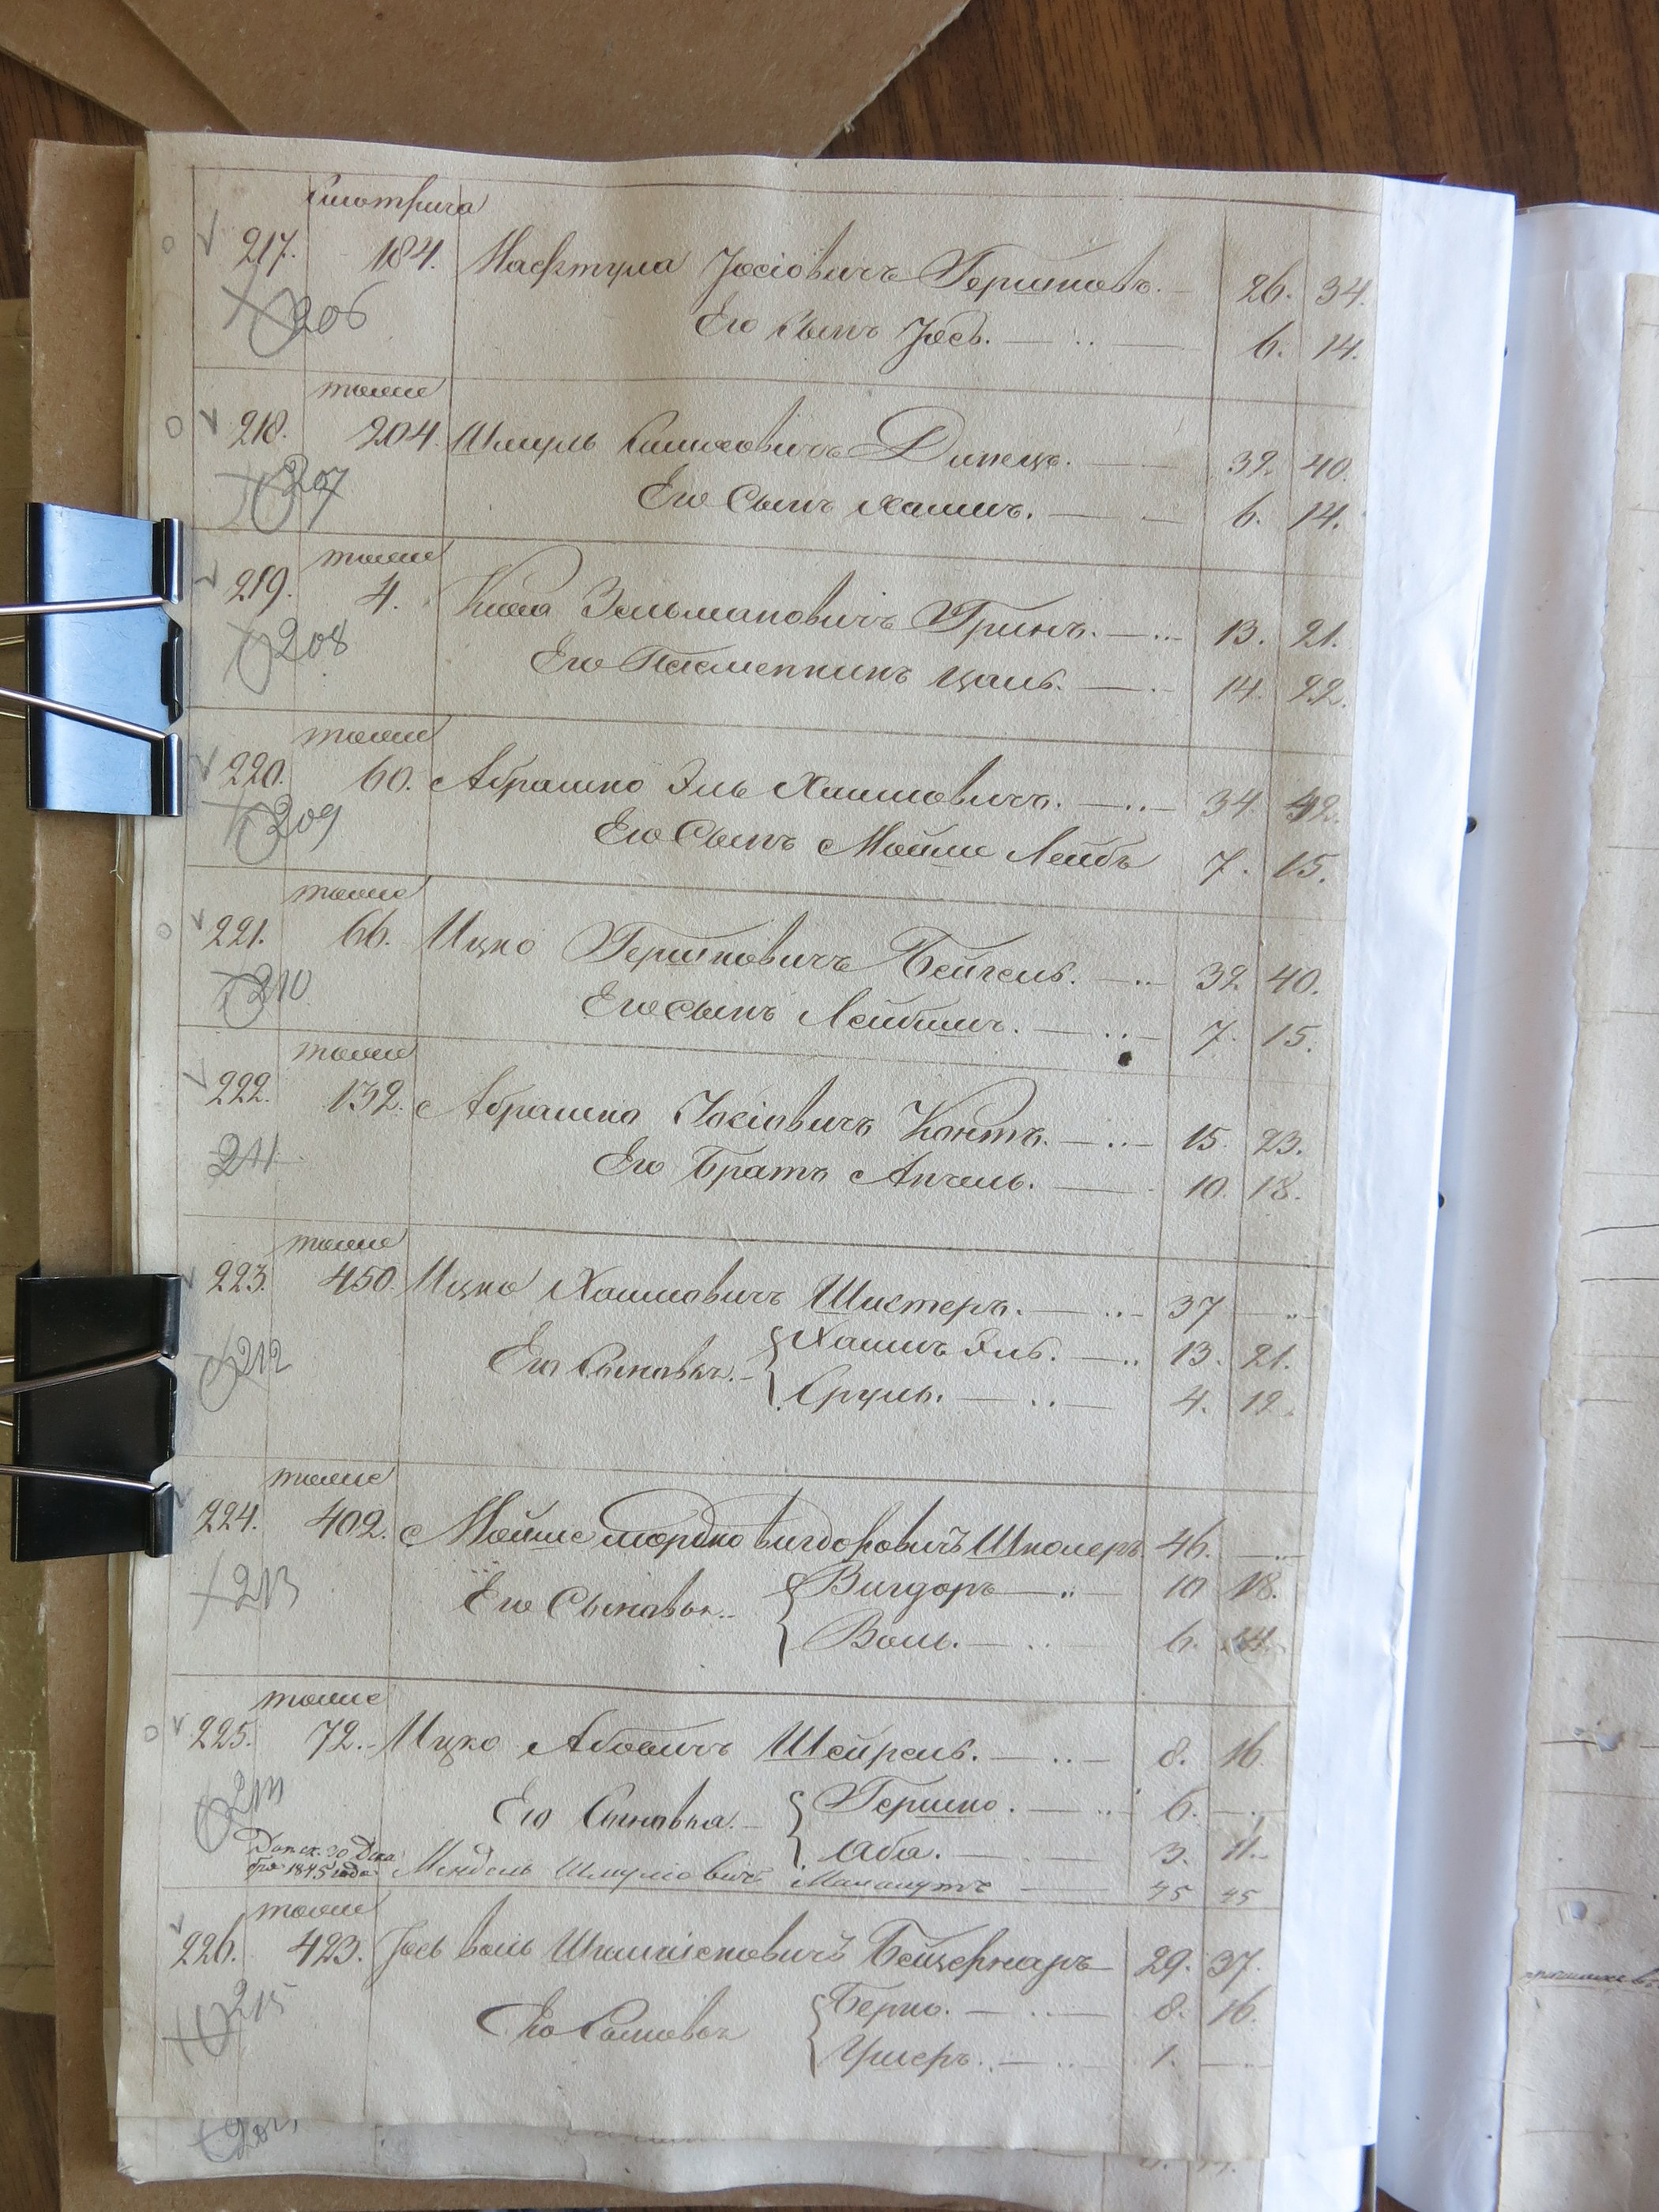 Смотрича
217. 184. Нафтула Іосіовичъ Гершковъ. 26. 34.
206 Его Сынъ Іось. 6. 14.
тоже
218. 204. Шмуль Симховичъ 32. 40.
207 Его Сынъ Хаимъ. 6. 14.
тоже
219. 4. Зельмановичъ Гринъ. 13. 21.
208 Его Племенникъ 14. 22.
тоже
220. 60. Абрашко Эль Хаимовичъ. 34. 42.
209 Его Сынъ Мойше Лейбъ 7. 15.
тоже
221. 66. Ицко Гершковичъ Бейгель. 32 40.
210 Его Сынъ Лейбишъ. 7. 15.
тоже
222. 132. Абрашко Іосіовичъ Контъ. 15. 23.
211 Его Братъ Анчель. 10. 18.
тоже
223. 450. Ицко Хаимовичъ Шистеръ. 37
Хаимъ Эль. 13. 21.
212 Его Сыновья. Сруль. 4. 12.
тоже
224. 402. Мойше Мордко Вигдоровичъ Школеръ 46.
Вигдоръ 10 18.
213 Его Сыновья. Воль. 6. 14.
тоже
225. 72. Ицко Абовичъ Шейрель. 8. 16.
214 Его Сыновья. Гершко. 6.
Аба. 3. 11.
Допск. 20 Дека
бря 1845 года Мендель Шмулiовичъ 45 45
тоже
226. 423. Іось Воль 29. 37.
215 Берко. 8. 16.
Его Сыновья Ушеръ. 1.